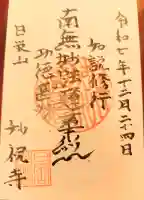 令和七年十二月二十四日
如説修行
南無妙法蓮華経
功徳
日栄山
妙祝寺